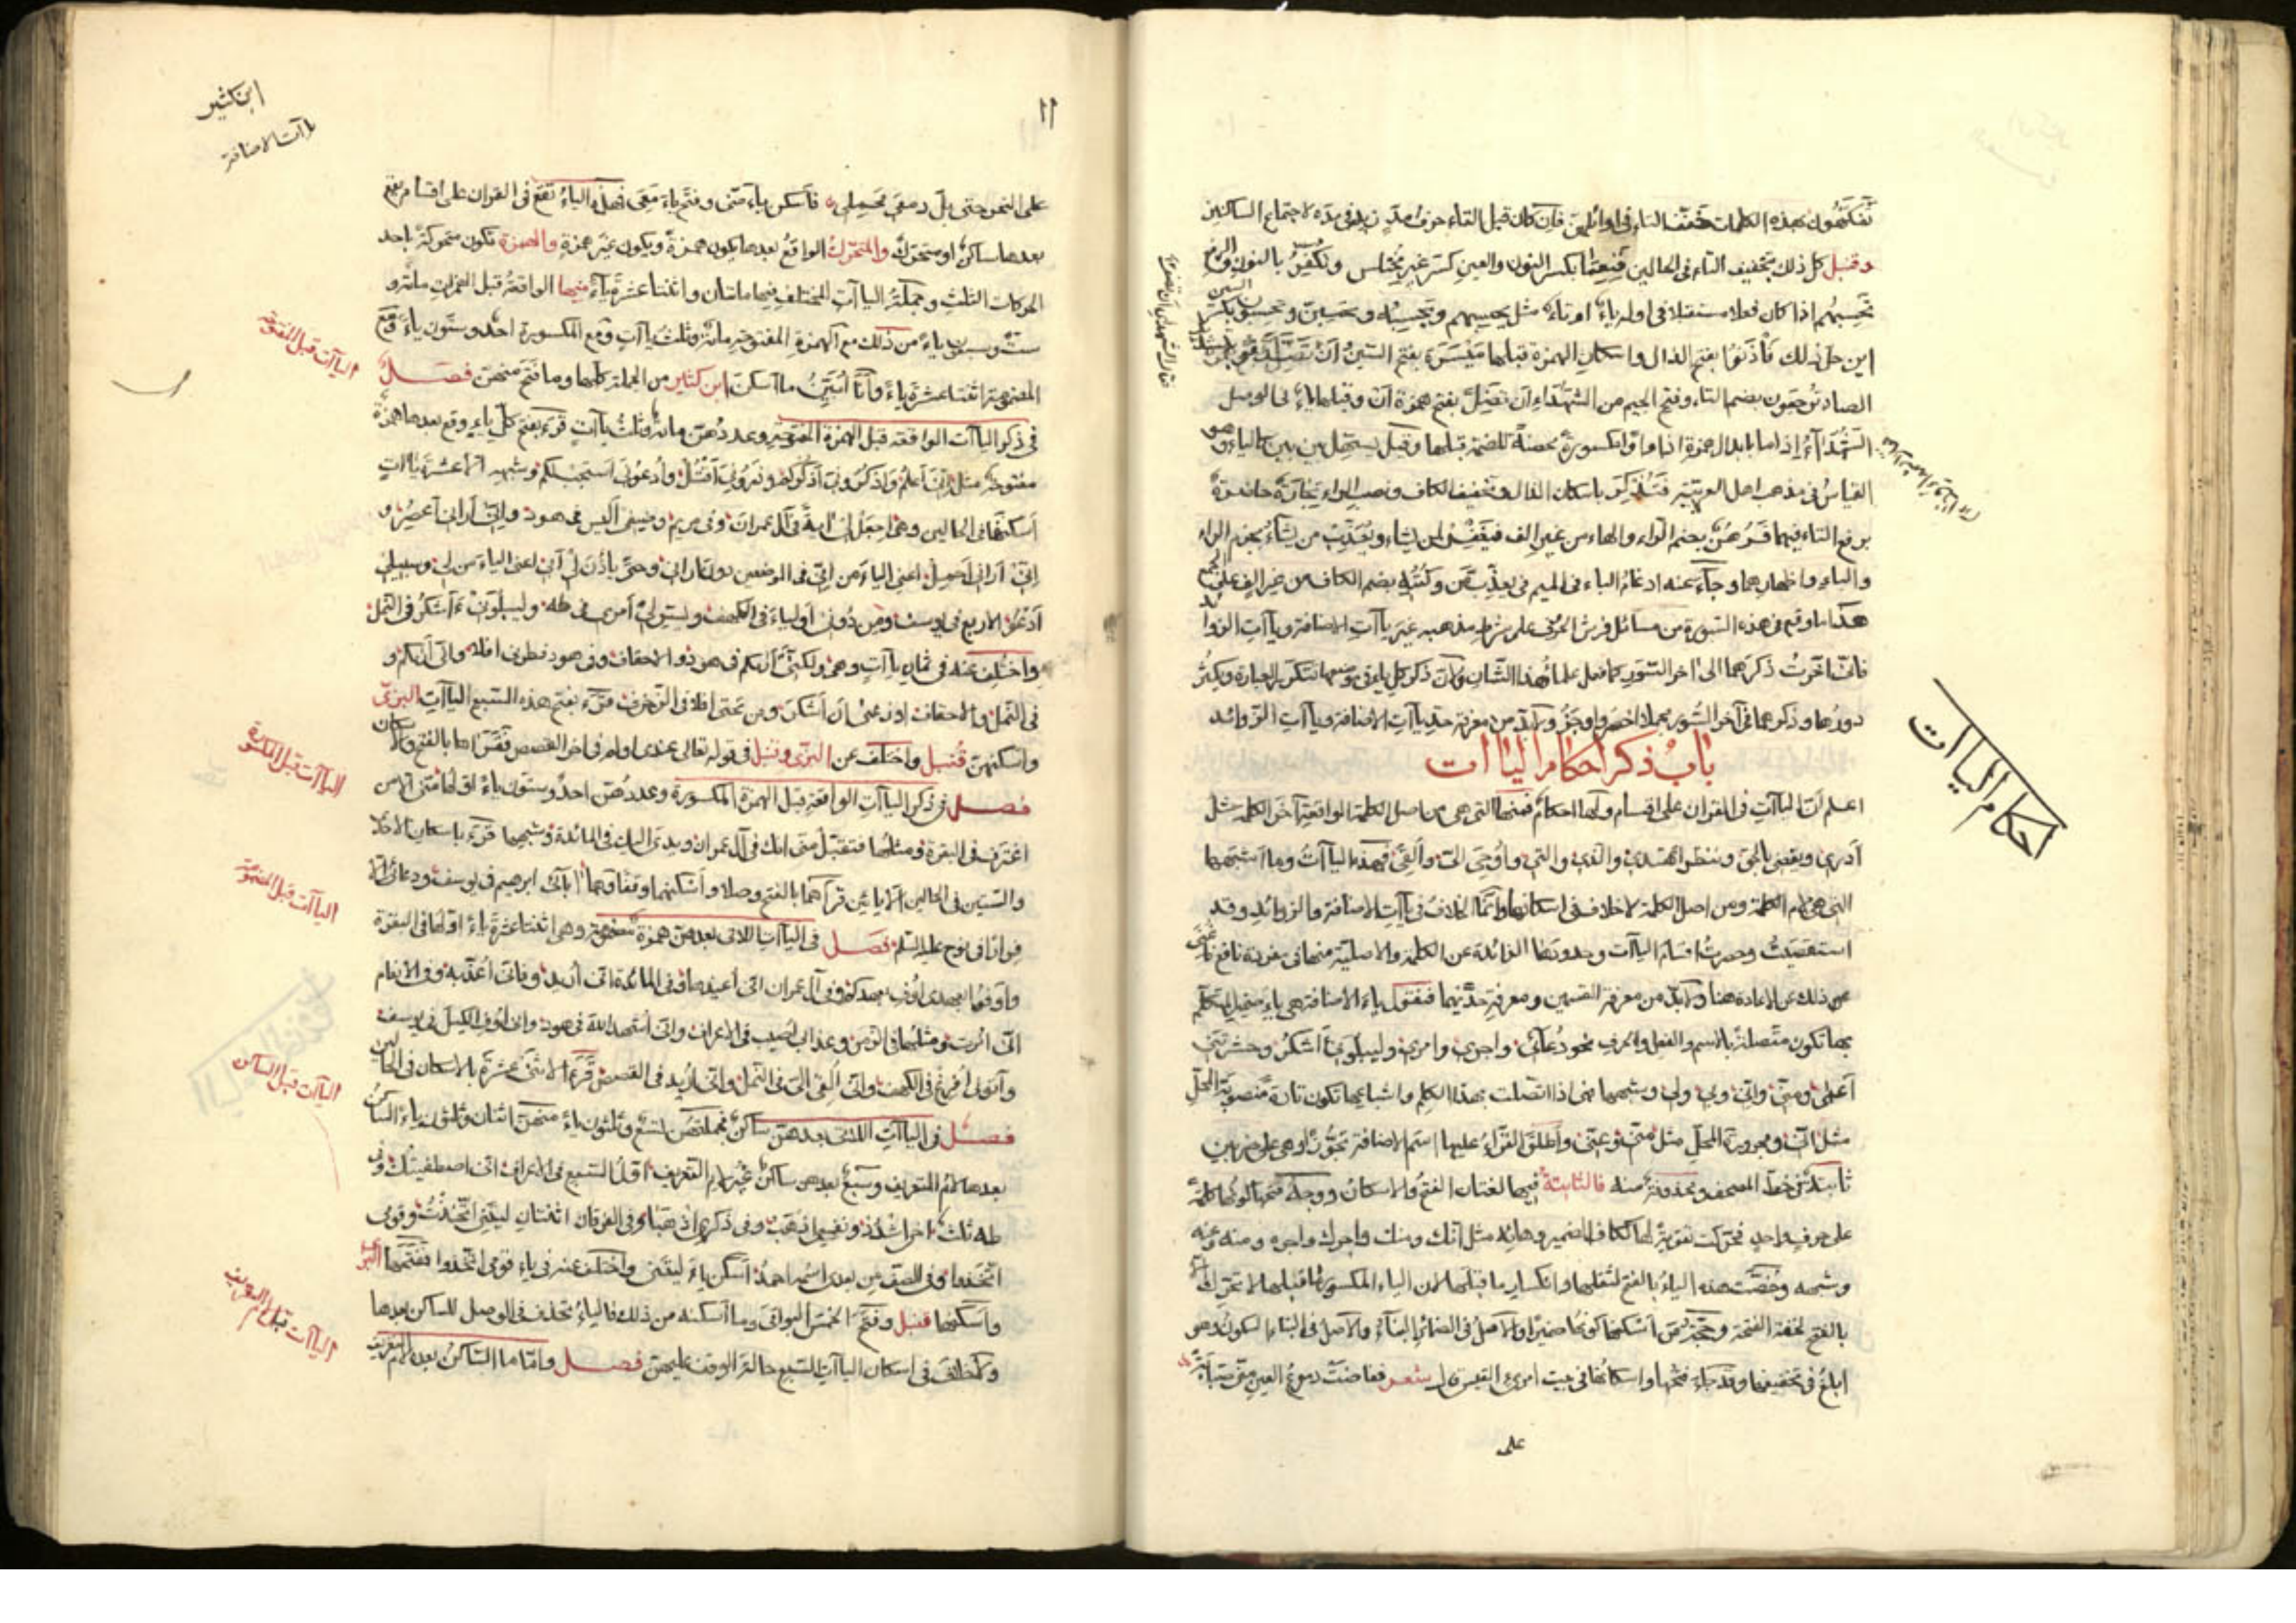 تفكهون بهذه الكلمات خفف التاء في اوائلهن فان كان قبل التاء حرف مد زيد في مده لاجتماع الساكنين
وقنبل كل ذلك بتخفيف التاء في الحالين فنعما بكسر النون والعين كسر غير مختلس ونكفر بالنون ورفع الراء
تحسبهم اذا كان فعلا مستقبلا في اوله ياء او تاء مثل يحسبهم وتحسبه وتحسبن وتحسبو بكسر السين
اين حل ذلك فأذنوا بفتح الذال واسكان الهمزة قبلها ميسرة بفتح السين أن تصدقوا
الصاد ترجعون بضم التاء وفتح الجيم من الشهداء أن تضل بفتح همزة أن وقبلها ياء في الوصل
الشهداء إذا ما بابدال همزة اذا ما واوا مكسورة محضة للضمة قبلها وقيل بتسهيل بين بين كالياء وهو
القياس في مذهب اهل العربية فتذكر باسكان الذال وتخفيف الكاف ونصب الراء تجارة حاضرة
برفع التاء فيهما فرهن بضم الراء والهاء من غير الف فيغفر لمن يشاء ويعذب من يشاء بجزم الراء
والباء واظهارهما وجاء عنه ادغام الباء في الميم في يعذب من وكتبه بضم الكاف من غير الف على الجمع
هذا ما وقع في هذه السورة من مسائل فرش الحرف على شرط مذهبه غير ياآت الاضافة وياآت الزوائد
فاني اخرت ذكرهما الى اخر السور كما فعل علماء هذا الشان ولان ذكر كل ياء في موضعها تتكرر العبارة ويكثر
دورها وذكرهما في آخر السور مجملا اخصر واوجز ولا بد من معرفة حد ياآت الاضافة وياآت الزوائد
باب ذكر احكام الياآت
احكام الياآت
اعلم ان الياآت في القران على اقسام ولها احكام فمنها التي هي من اصل الكلمة الواقعة آخر الكلمة مثل
أدري ويقضي يأتي وننظر أتهتدي والذي والتي وأوحي الي وألقي فهذه الياآت وما اشبهها
التي هي لام الكلمة ومن اصل الكلمة لاخلاف في اسكانها وانما الخلاف في ياآت الاضافة والزوائد وقد
استقصيت وحصرت اقسام الياآت وحدودها الزائدة عن الكلمة والاصلية منها في مفردة نافع فاغنى
عن ذلك عن الاعادة هنا ولا بد من معرفة القسمين ومعرفة حديهما فنقول ياء الاضافة هي ياء ضمير المتكلم
بها تكون متصلة بالاسم والفعل والحرف نحو دعائي واجري وامري وليبلوني أأشكر وحشرتني
أعمى ومني واني وبي ولي وشبهها فهي اذا اتصلت بهذا الكلم واشباهها تكون تارة منصوبة المحل
مثل اني ومجرورة المحل مثل مني وعني وأطلق القراء عليها اسم الاضافة تجوزا وهي على ضربين
ثابتة في خط المصحف ومحذوفة منه فالثابتة فيها لغتان الفتح والاسكان ووجه فتحها كونها كلمة
على حرف واحد فحركت تقوية لها ككاف الضمير وهائه مثل انك ومنك واجرك واجره ومنه وعنه
وشبهه وخصت هذه الياء بالفتح لثقلها وانكسار ما قبلها لان الياء المكسورة ما قبلها لا تحرك الا
بالفتح لخفة الفتحة وحجة من أسكنها كونها ضميرا والاصل في الضمائر البناء والاصل في البناء السكون وهو
ابلغ في تخفيفها وقد جاء فتحها واسكانها في بيت امرئ القيس قال شعر ففاضت دموع العين مني صبابة
على
١١
ابن كثير
ياآت الاضافة
على النحر حتى بل دمعي محملي فأسكن ياء مني وفتح ياء دمعي فهذه الياء تقع في القران على اقسام يقع
بعدها ساكن او متحرك والمتحرك الواقع بعدها يكون همزة ويكون غير همزة والهمزة تكون متحركة باحد
الحركات الثلث وجملة الياآت المختلف فيها مائتان واثنتا عشرة ياء منها الواقعة قبل الهمزات مائة و
ست وسبعون ياء من ذلك مع الهمزة المفتوحة مائة وثلث ياآت ومع المكسورة احد وستون ياء ومع
الياآت قبل المفتوحة
المضمومة اثنتا عشرة ياء وأنا أبين ما اسكن ابن كثير من الجملة كلها وما فتح منهن فصل
في ذكر الياآت الواقعة قبل الهمزة المفتوحة وعددهن مائة وثلث ياآت قرء بفتح كل ياء وقع بعدها همزة
مفتوحة مثل اني أعلم واذكروني أذكركم وذروني أقتل وادعوني أستجب لكم وشبهه الا عشر ياآت
أسكنها في الحالين وهي اجعل لي آية في آل عمران وفي مريم وضيفي أليس في هود واني أراني أعصر و
اني أراني أحمل اعني الياء من اني في الموضعين دون أراني وحتى يأذن لي أبي اعني الياء من لي وسبيلي
أدعو الاربع في يوسف ومن دوني أولياء في الكهف ويسر لي أمري في طه وليبلوني ءأشكر في النمل
واختلف عنه في ثمان ياآت وهي ولكني أراكم في هود والاحقاف وفي هود فطرني افلا واني أراكم و
في النمل والاحقاف اوزعني ان أشكر ومن تحتي افلا في الزخرف قرء بفتح هذه السبع الياآت البزي
واسكنهن قنبل واختلف عن البزي وقنبل في قوله تعالى عندي اولم في اخر القصص فقرءاها بالفتح والاسكان
الياآت قبل المكسورة
فصل في ذكر الياآت الواقعة قبل الهمزة المكسورة وعددهن احد وستون ياء اولها مني الا من
اغترف في البقرة ومثلها فتقبل مني انك في آل عمران ويدي اليك في المائدة وشبهها قرء باسكان الاحد
والستين في الحالين الا يائين قرأهما بالفتح وصلا وأسكنهما وقفا وهما آبائي ابرهيم في يوسف ودعائي الا
الياآت قبل المضمومة
فرارا في نوح عليه السلام فصل في الياآت اللاتي بعدهن همزة مضمومة وهي اثنتا عشرة ياء اولها في البقرة
واوفوا بعهدي اوف بعهدكم وفي آل عمران اني أعيذها وفي المائدة اني أريد وفاني أعذبه وفي الانعام
اني امرت ومثلها في الزمر وعذابي اصيب في الاعراف واني أشهد الله في هود واني أوف الكيل في يوسف
وآتوني أفرغ في الكهف واني ألقي الي في النمل واني أريد في القصص قرء الاثنتي عشرة بالاسكان في الحالين
الياآت قبل الساكن
فصل في الياآت اللاتي بعدهن ساكن فجملتهن تسع وثلثون ياء منهن اثنان وثلثون ياء الساكن
بعدها لام التعريف وسبع بعدهن ساكن غير لام التعريف اول السبع في الاعراف اني اصطفيتك وفي
طه ثلث اخي اشدد ولنفسي اذهب وفي ذكري اذهبا وفي الفرقان اثنتان ليتني اتخذت وقومي
اتخذوا وفي الصف من بعدي اسمه احمد أسكن ياء ليتني واختلف عنه في ياء قومي اتخذوا ففتحها البزي
وأسكنها قنبل وفتح الخمس البواقي وما أسكنه من ذلك فالياء تحذف في الوصل للساكن بعدها
الياآت قبل لام التعريف
ولا خلاف في اسكان الياآت السبع حالة الوقف عليهن فصل واما ما الساكن بعده لام التعريف